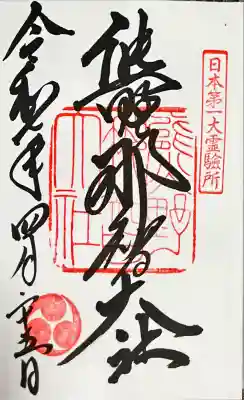 日本第一大霊驗所
熊野那智大社
令和七年四月二十五日